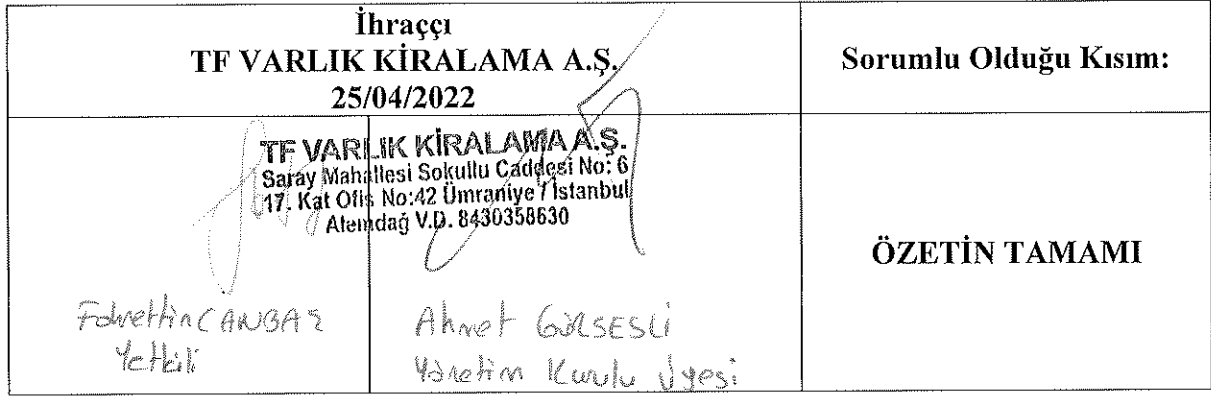 İhraççı
TF VARLIK KİRALAMA A.Ş.
25/04/2022
Sorumlu Olduğu Kısım:
TF VARLIK KİRALAMA A.Ş.
Saray Mahallesi Sokullu Caddesi No: 6
17. Kat Ofis No:42 Ümraniye / İstanbul
Alemdağ V.D. 8430358630
Fahrettin CANBAZ
Yetkili
Ahmet GÜRSESLİ
Yönetim Kurulu Üyesi
ÖZETİN TAMAMI